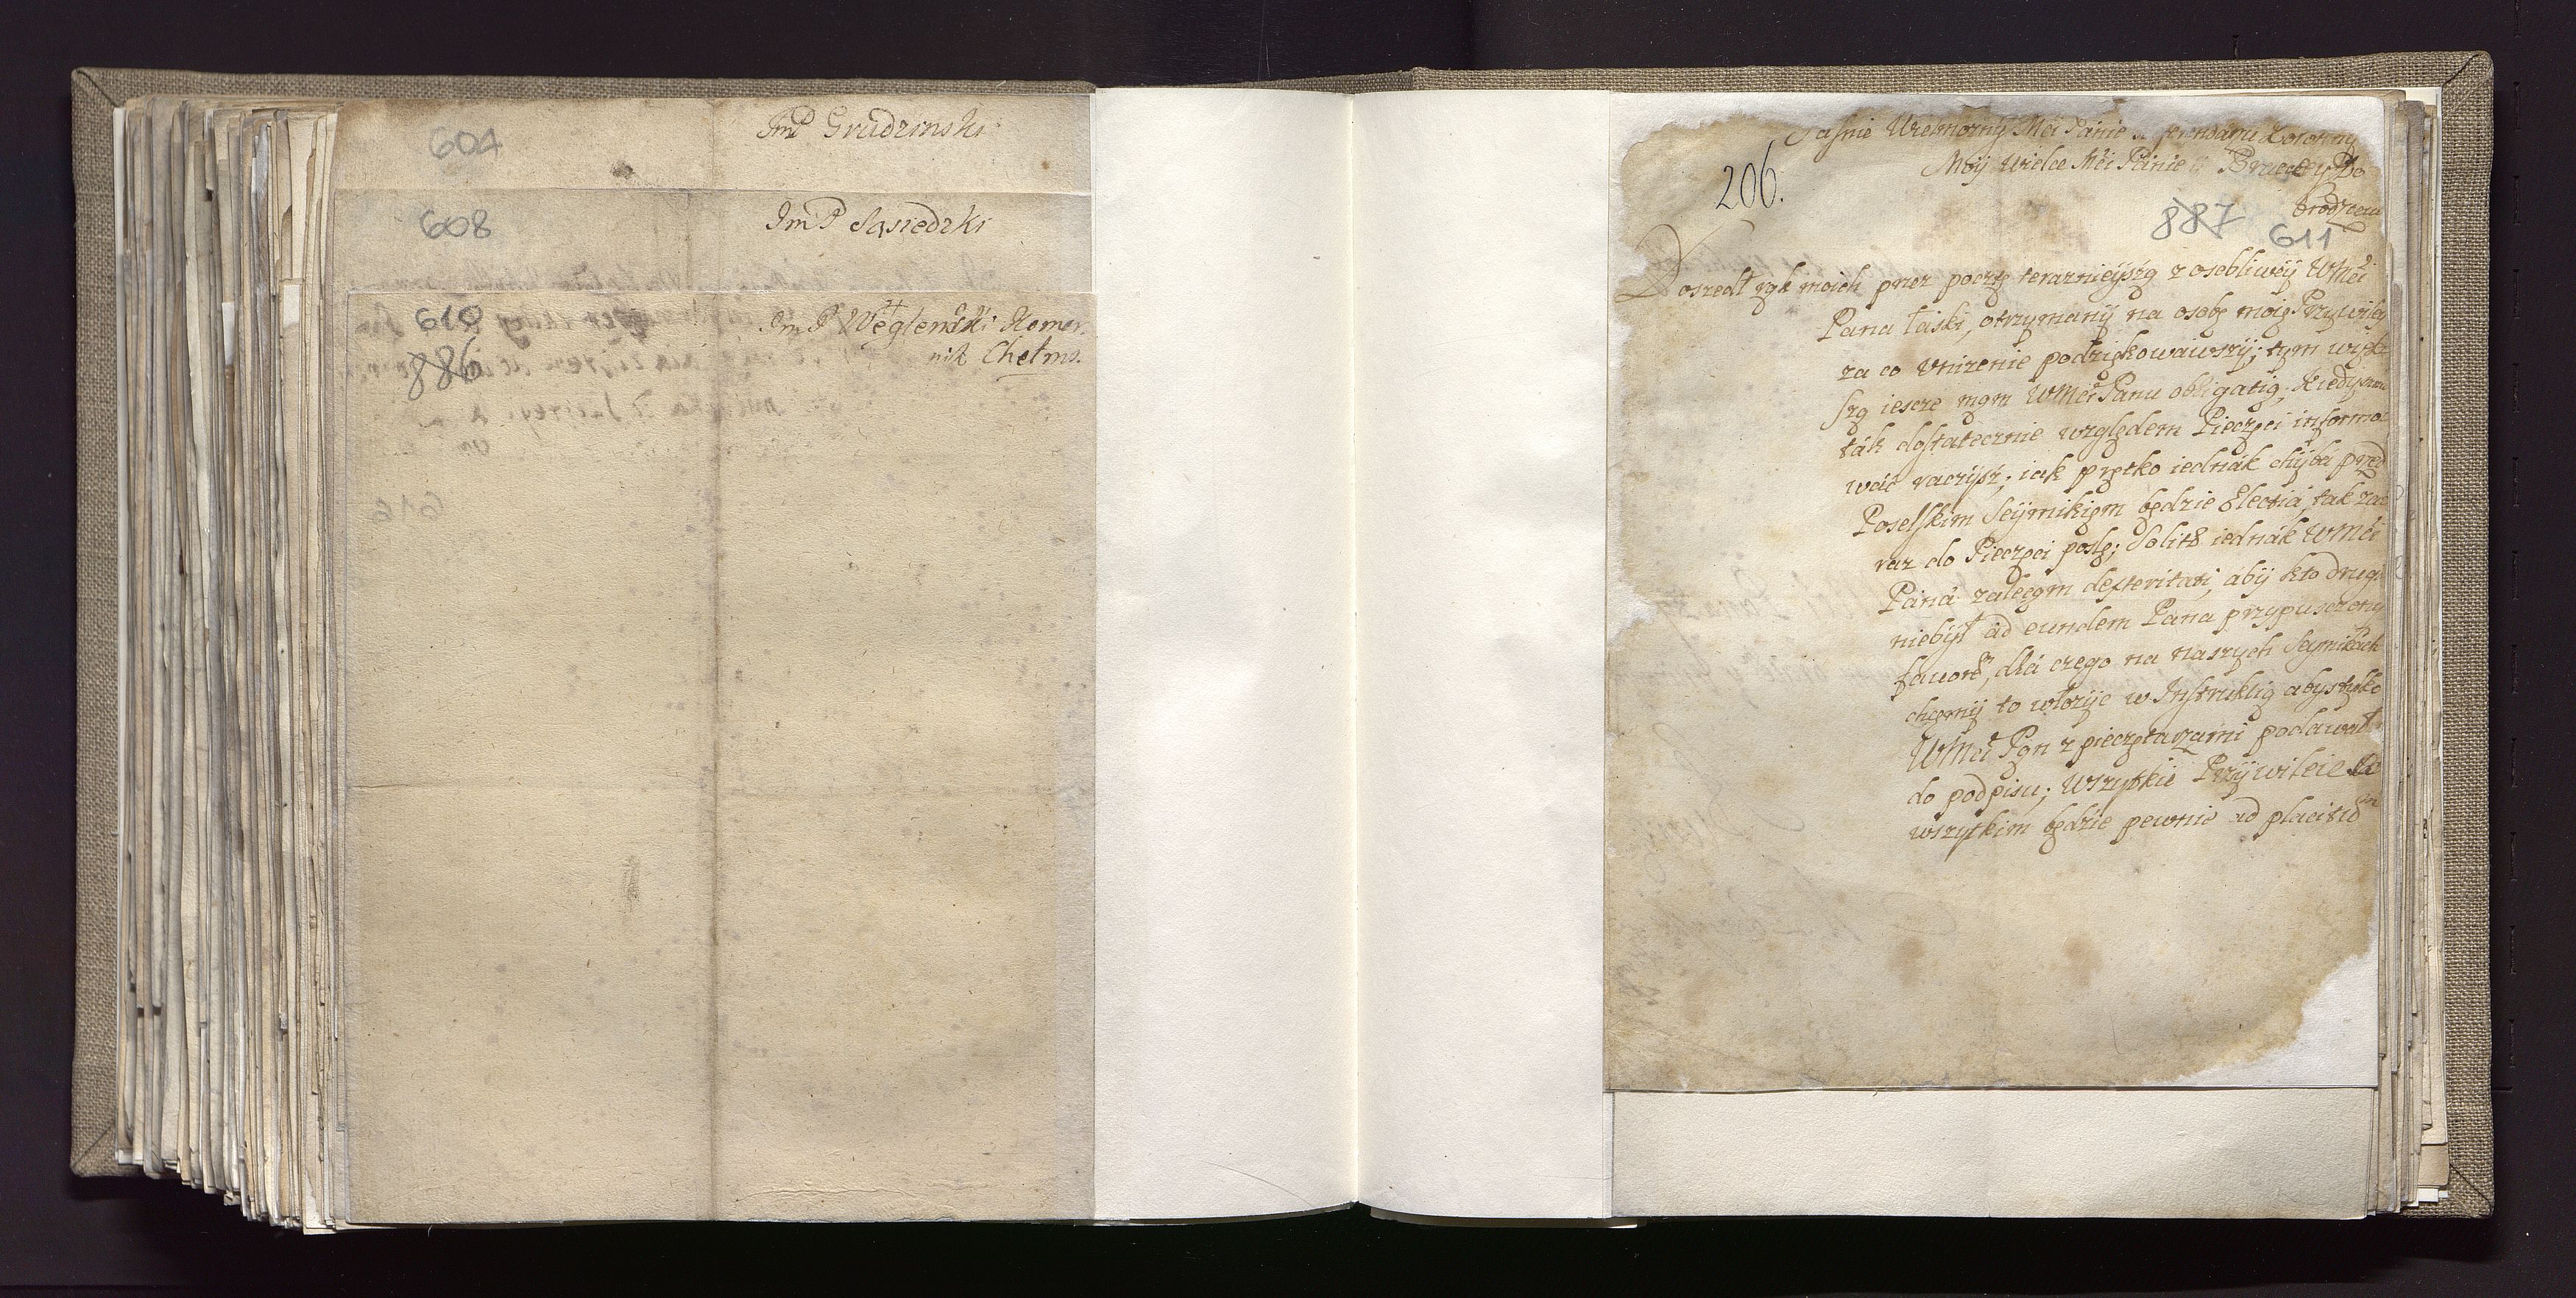 604
ImP Grudzinski
608
ImP Sąsiedzki
610
886
ImP Węglenski Komor
nik Chełms.
Jasnie Wielmozny Mći Panie Koronny
Moy Wielce Mći Panie
206.
brodzieiu
887 611
Doszedł rąk moich przez pocztę teraznieyszą z osobliwey WMći
Pana łaski, otrzymany na osobę moię Przywiley
za co vnizenie podziękowawszy; tym więk
szą iescze mam WMći Panu obligatią, Kiedy
ták dostatecznie względem Pieczęci informo
wáć raczysz; iak prętko iednák chyba przed
Poselskim Seymikiem będzie Electia, tak za
raz do Pieczęci poslę; Solitæ iednák WMći
Páná zálecam dexteritati, áby kto drugi
niebył ad eundem Pana przypusczony
fauorē, dlá czego na naszych Seymikach
chcemy to włozyc w Instruktią abys tylko
WMći Pan z pieczętarzámi podawał
do podpisu; wszytkie Przywileie
wszytkim będzie pewnie ad placitū